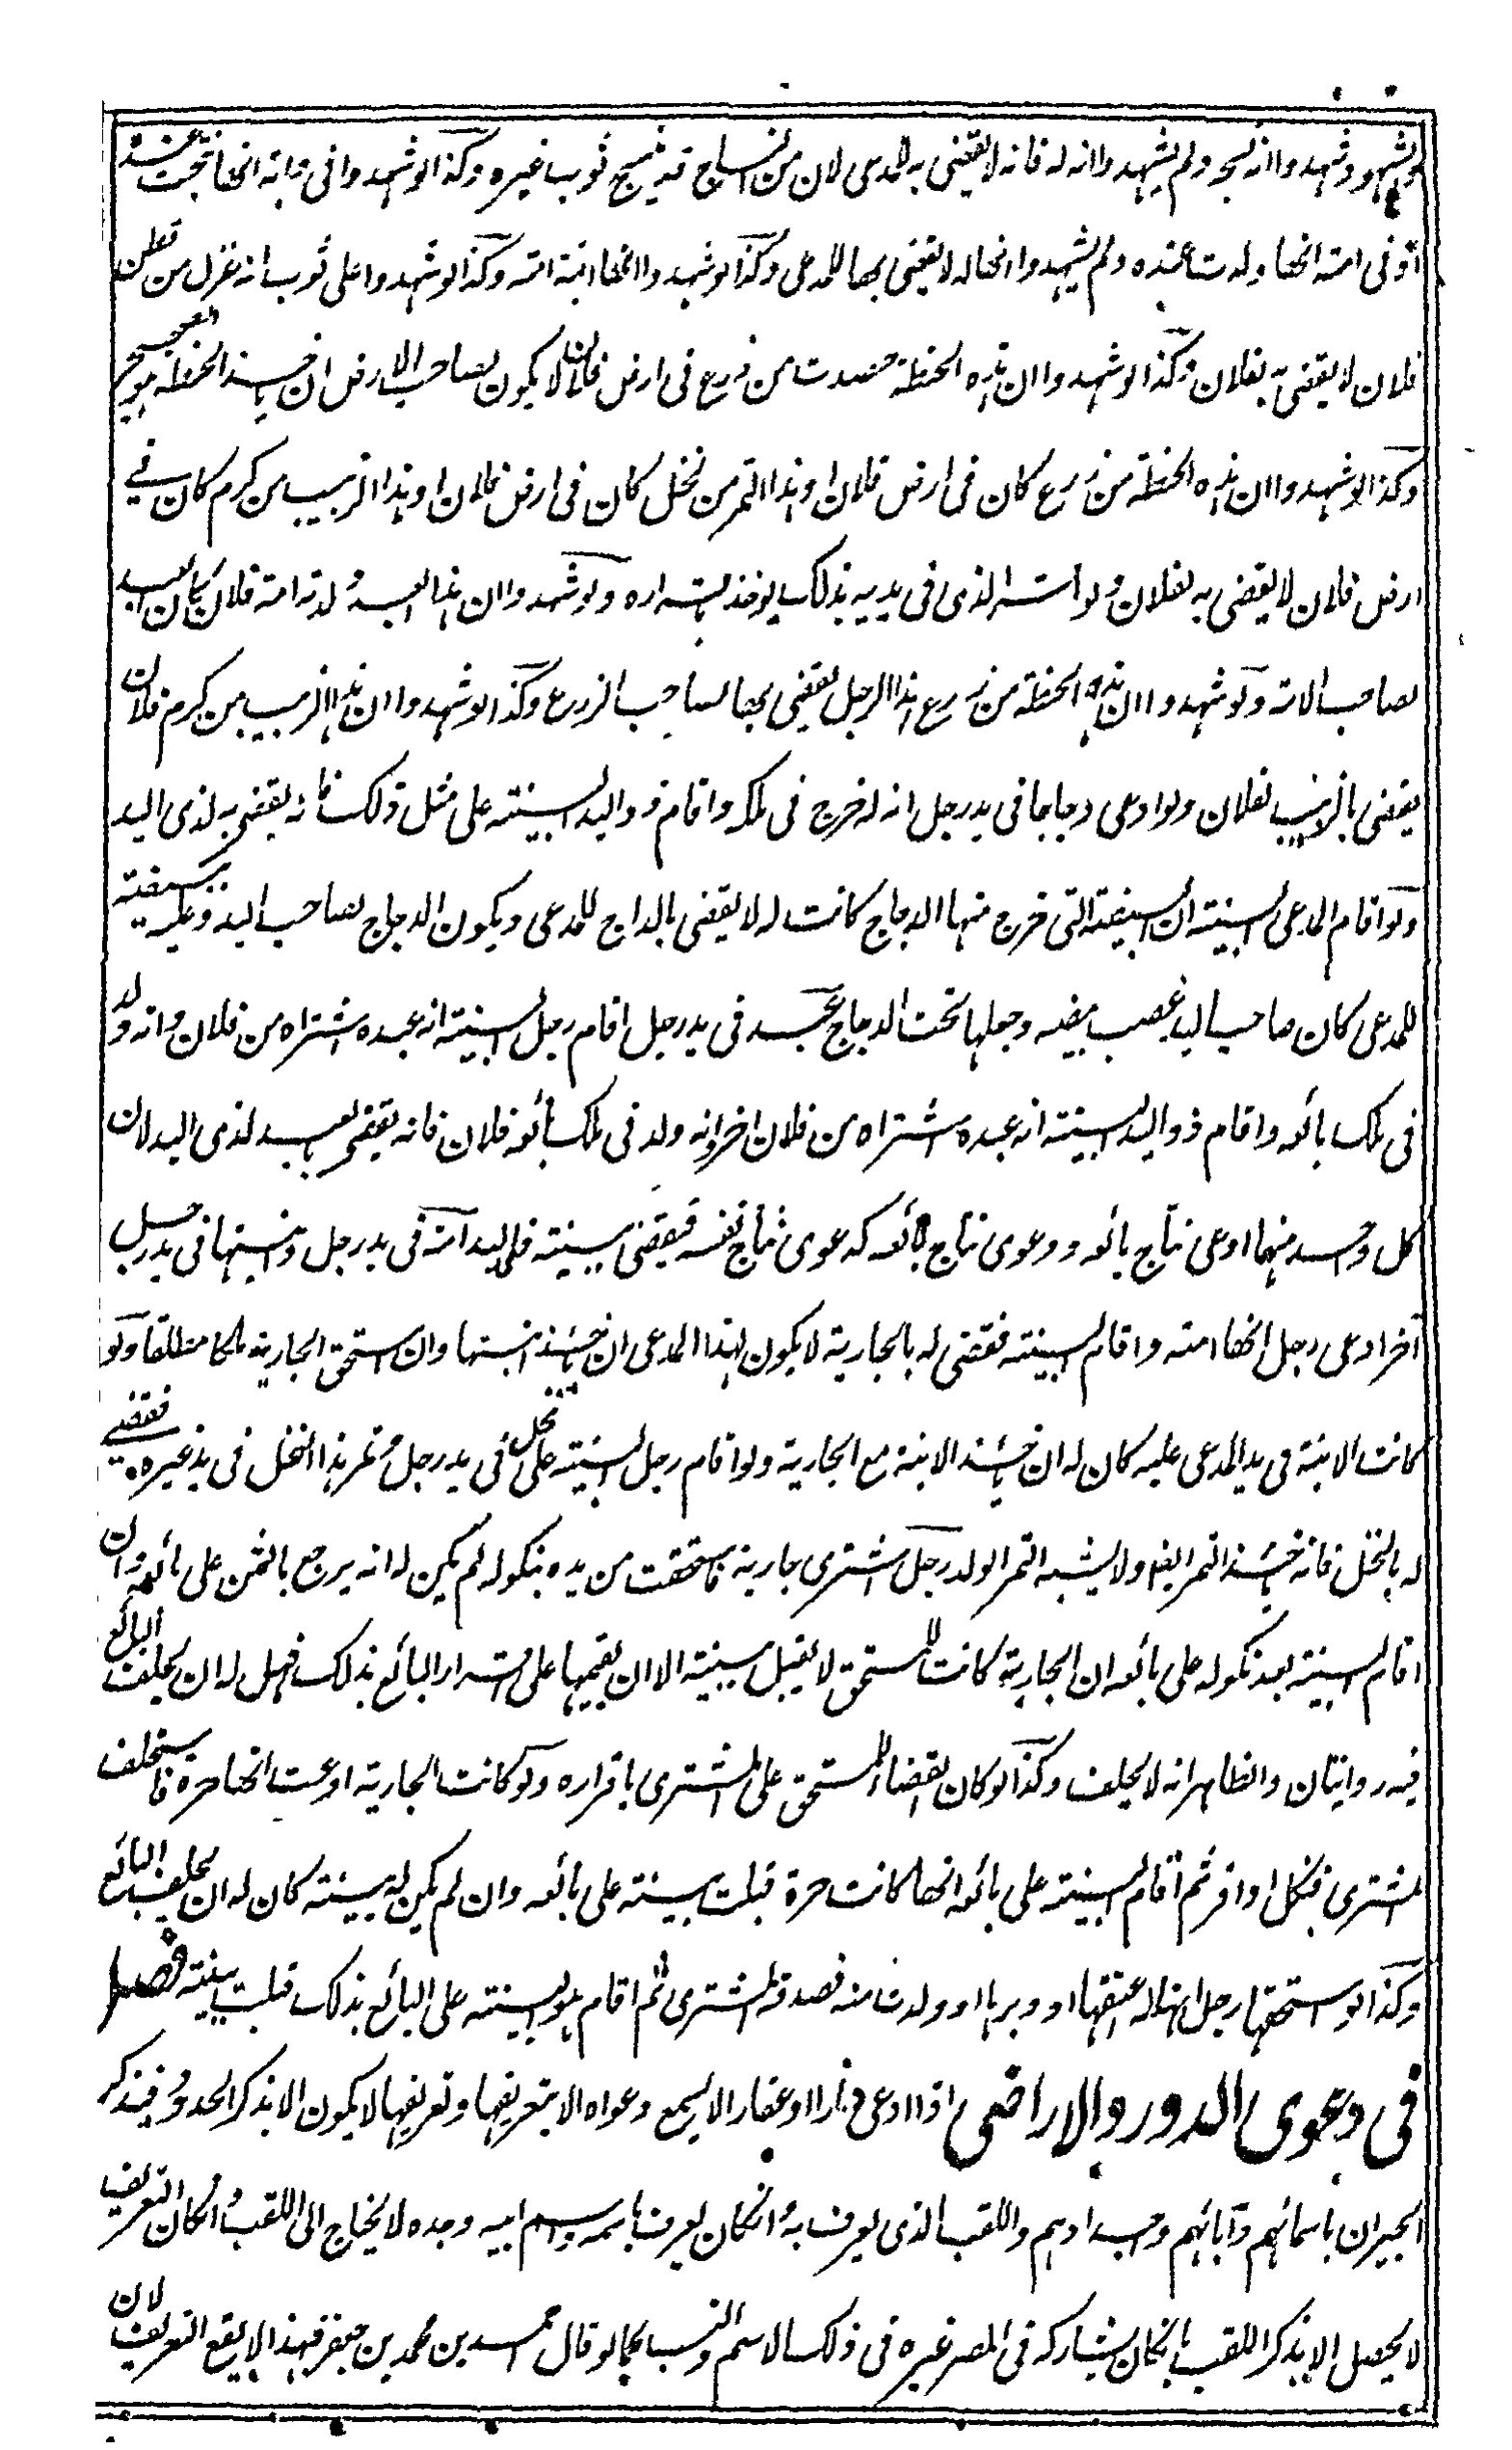 الشهود شهدوا انه نسجه ولم يشهدوا انه له فانه لا يقضى به للمدعى لان من النساج قد ينسج ثوب غيره وكذا لو شهدوا فى دابة انها نتجت عنده
او فى امة انها ولدت عنده ولم يشهدوا انها له لا يقضى بها للمدعى وكذا لو شهدوا انها ابنة امته وكذا لو شهدوا على ثوب انه غزل من قطن
فلان لا يقضى به لفلان وكذا لو شهدوا ان هذه الحنطة حصدت من زرع فى ارض فلان لا يكون لصاحب الارض ان ياخذ الحنطة هو الصحيح
وكذا لو شهدوا ان هذه الحنطة من زرع كان فى ارض فلان او هذا التمر من نخل كان فى ارض فلان او هذا الزبيب من كرم كان فى
ارض فلان لا يقضى به لفلان ولو اقر الذى فى يديه بذلك يوخذ باقراره ولو شهدوا ان هذا العبد ولدته امة فلان كان العبد
لصاحب الامة ولو شهدوا ان هذه الحنطة من زرع هذا الرجل يقضى بها لصاحب الزرع وكذا لو شهدوا ان هذا الزبيب من كرم فلان
يقضى بالزبيب لفلان ولو ادعى دجاجا فى يد رجل انه له خرج فى ملكه واقام ذو اليد البينة على مثل ذلك فانه يقضى به لذى اليد
ولو اقام المدعى البينة ان البيضة التى خرج منها الدجاج كانت له لا يقضى بالدجاج للمدعى ويكون الدجاج لصاحب اليد وعليه بيضة
للمدعى كان صاحب اليد غصب بيضه وجعلها تحت الدجاج عبد فى يد رجل اقام رجل البينة انه عبده اشتراه من فلان وانه ولد
فى ملك بائعه واقام ذو اليد البينة انه عبده اشتراه من فلان اخر وانه ولد فى ملك بائعه فلان فانه يقضى بالعبد لذى اليد لان
كل واحد منهما ادعى نتاج بائعه ودعوى نتاج بائعه كدعوى نتاج نفسه فيقضى ببينة ذى اليد امة فى يد رجل وابنتها فى يد رجل
آخر ادعى رجل انها امته واقام البينة فقضى له بالجارية لا يكون لهذا المدعى ان ياخذ ابنتها وان استحق الجارية ملكا مطلقا ولو
كانت الابنة فى يد المدعى عليه كان له ان ياخذ الابنة مع الجارية ولو اقام رجل البينة على نخل فى يد رجل وتمر هذا النخل فى يد غيره فقضى
له بالنخل فانه ياخذ التمر ايضا ولا يشبه التمر الولد رجل اشترى جارية فاستحقت من يده بنكوله لم يكن له انه يرجع بالثمن على بائعه وان
اقام البينة بعد نكوله على بائعه ان الجارية كانت للمستحق لا يقبل بينته الا ان يقيمها على اقرار البائع بذلك فهل له ان يحلف البائع
فيه روايتان والظاهر انه لا يحلف وكذا لو كان القضاء للمستحق على المشترى باقراره ولو كانت الجارية ادعت انها حرة فاستحلف
المشترى فنكل او اقر ثم اقام البينة على بائعه انها كانت حرة قبلت بينته على بائعه وان لم يكن له بينة كان له ان يحلف البائع
وكذا لو استحقها رجل انها له اعتقها او دبرها او ولدت منه فصدقه المشترى ثم اقام هو البينة على البائع بذلك قبلت بينته فصل
فى دعوى الدور والاراضى اذا ادعى دارا او عقارا لا يسمع دعواه الا بتعريفها وتعريفها لا يكون الا بذكر الحدود فيذكر
الجيران باسمائهم وآبائهم واجدادهم واللقب الذى يعرف به وانكان يعرف باسمه واسم ابيه وحده لا يحتاج الى اللقب وانكان التعريف
لا يحصل الا بذكر اللقب بانكان يشاركه فى المصر غيره فى ذلك الاسم والنسب كما لو قال احمد بن محمد بن جعفر فهذا لا يقع التعريف لان